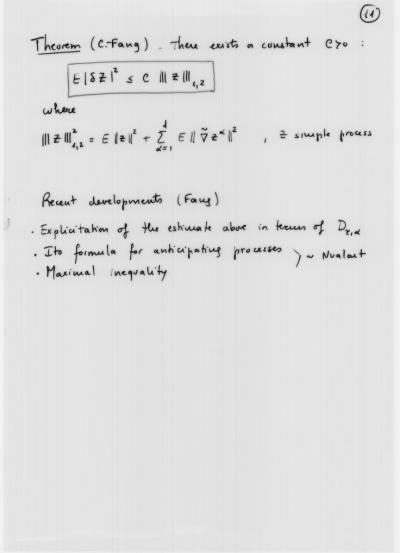 (11)
Theorem (C-Fang). There exists a constant C>0 :
E|δZ|² ≤ C |||Z|||₁,₂
where
|||Z|||²₁,₂ = E‖Z‖² + Σ_{α=1}^{d} E‖∇̃Z^α‖² , Z simple process
Recent developments (Fang)
. Explicitation of the estimate above in terms of D_{τ,α}
. Ito formula for anticipating processes } ~ Nualart
. Maximal inequality